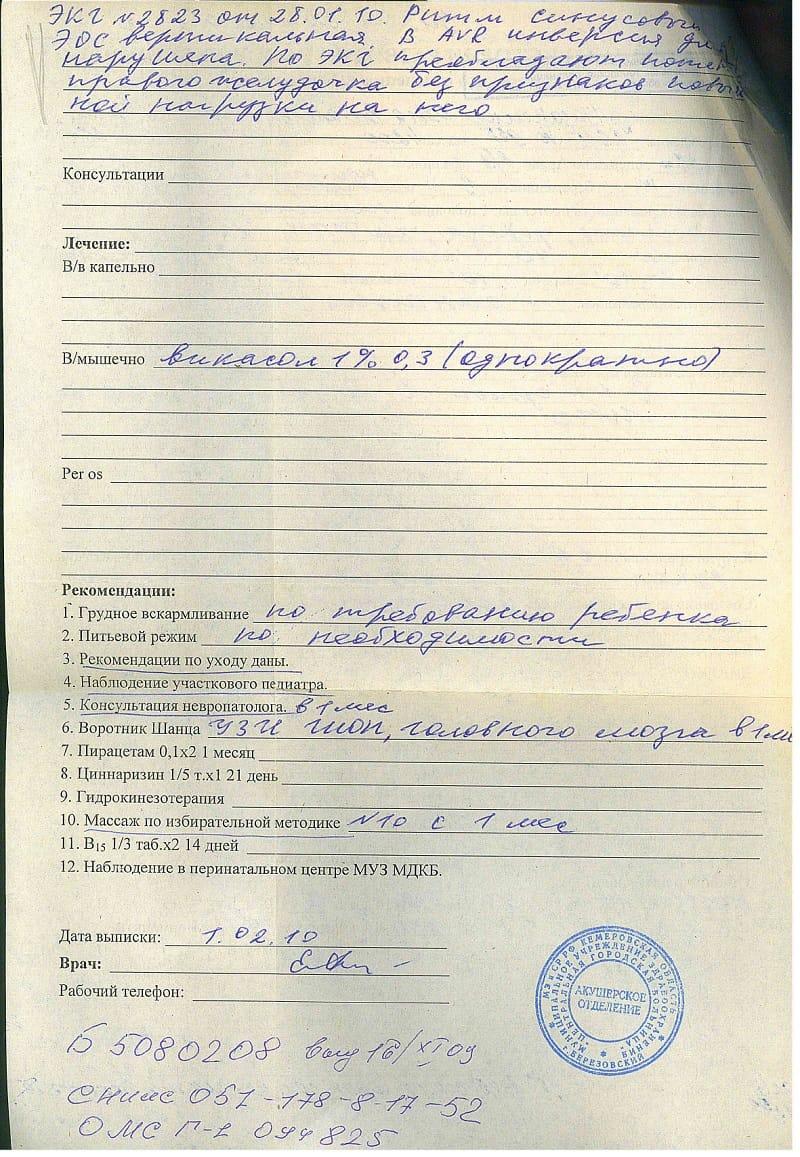 ЭКГ №2823 от 28.01.10. Ритм синусовый
ЭОС вертикальная. В AVR инверсия
нарушена. По ЭКГ преобладают
правого желудочка без признаков
ной нагрузки на него
Консультации
Лечение:
В/в капельно
В/мышечно викасол 1% 0,3 (однократно)
Per os
Рекомендации:
1. Грудное вскармливание по требованию ребенка
2. Питьевой режим по необходимости
3. Рекомендации по уходу даны.
4. Наблюдение участкового педиатра.
5. Консультация невропатолога. в 1 мес
6. Воротник Шанца УЗИ ШОП, головного мозга в 1
7. Пирацетам 0,1х2 1 месяц
8. Циннаризин 1/5 т.х1 21 день
9. Гидрокинезотерапия
10. Массаж по избирательной методике №10 с 1 мес
11. В15 1/3 таб.х2 14 дней
12. Наблюдение в перинатальном центре МУЗ МДКБ.
Дата выписки: 1.02.10
Врач:
Рабочий телефон:
МЗ и СР РФ КЕМЕРОВСКАЯ ОБЛАСТЬ
МУНИЦИПАЛЬНОЕ УЧРЕЖДЕНИЕ ЗДРАВООХРАНЕНИЯ
"ЦЕНТРАЛЬНАЯ ГОРОДСКАЯ БОЛЬНИЦА"
г. БЕРЕЗОВСКИЙ
АКУШЕРСКОЕ
ОТДЕЛЕНИЕ
Б 5080208 16/XI 09
Снилс 051-178-8-17-52
ОМС П-1 094825